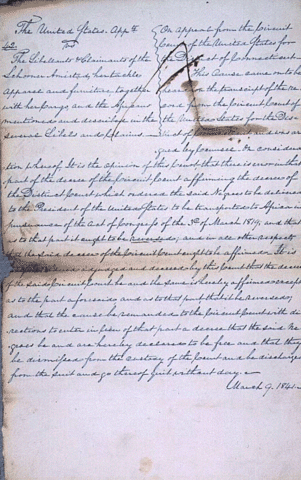 The United States. Appts
vs
The Libellants & Claimants of the
Schooner Amistad, her tackle,
Apparel and furniture, together
with her Cargo, and the Africans
mentioned and described in the
several Libels and Claims.
On appeal from the Circuit
Court of the United States for
the District of Connecticut.
This Cause came on to
the transcript of the re-
from the Circuit Court of
the United States for the Dis-
gued by Counsel. On considera-
tion whereof, It is the opinion of this Court that there is error in that
part of the decree of the Circuit Court affirming the decree of
the District Court which ordered the said Negroes to be delivered
to the President of the United States to be transported to Africa in
pursuance of the Act of Congress of the 3d of March 1819; and that
as to that part it ought to be reversed; and in all other respects
that the said decree of the Circuit Court ought to be affirmed. It is
ordered adjudged and decreed by this Court that the decree
of the said Circuit Court be and the same is hereby affirmed except
as to the part aforesaid and as to that part that it be reversed;
and that the cause be remanded to the Circuit Court with di-
rections to enter in lieu of that part a decree that the said Ne-
groes be and are hereby declared to be free and that they
be dismissed from the custody of the Court and be discharged
from the suit and go thereof quit without day.
March 9. 1841